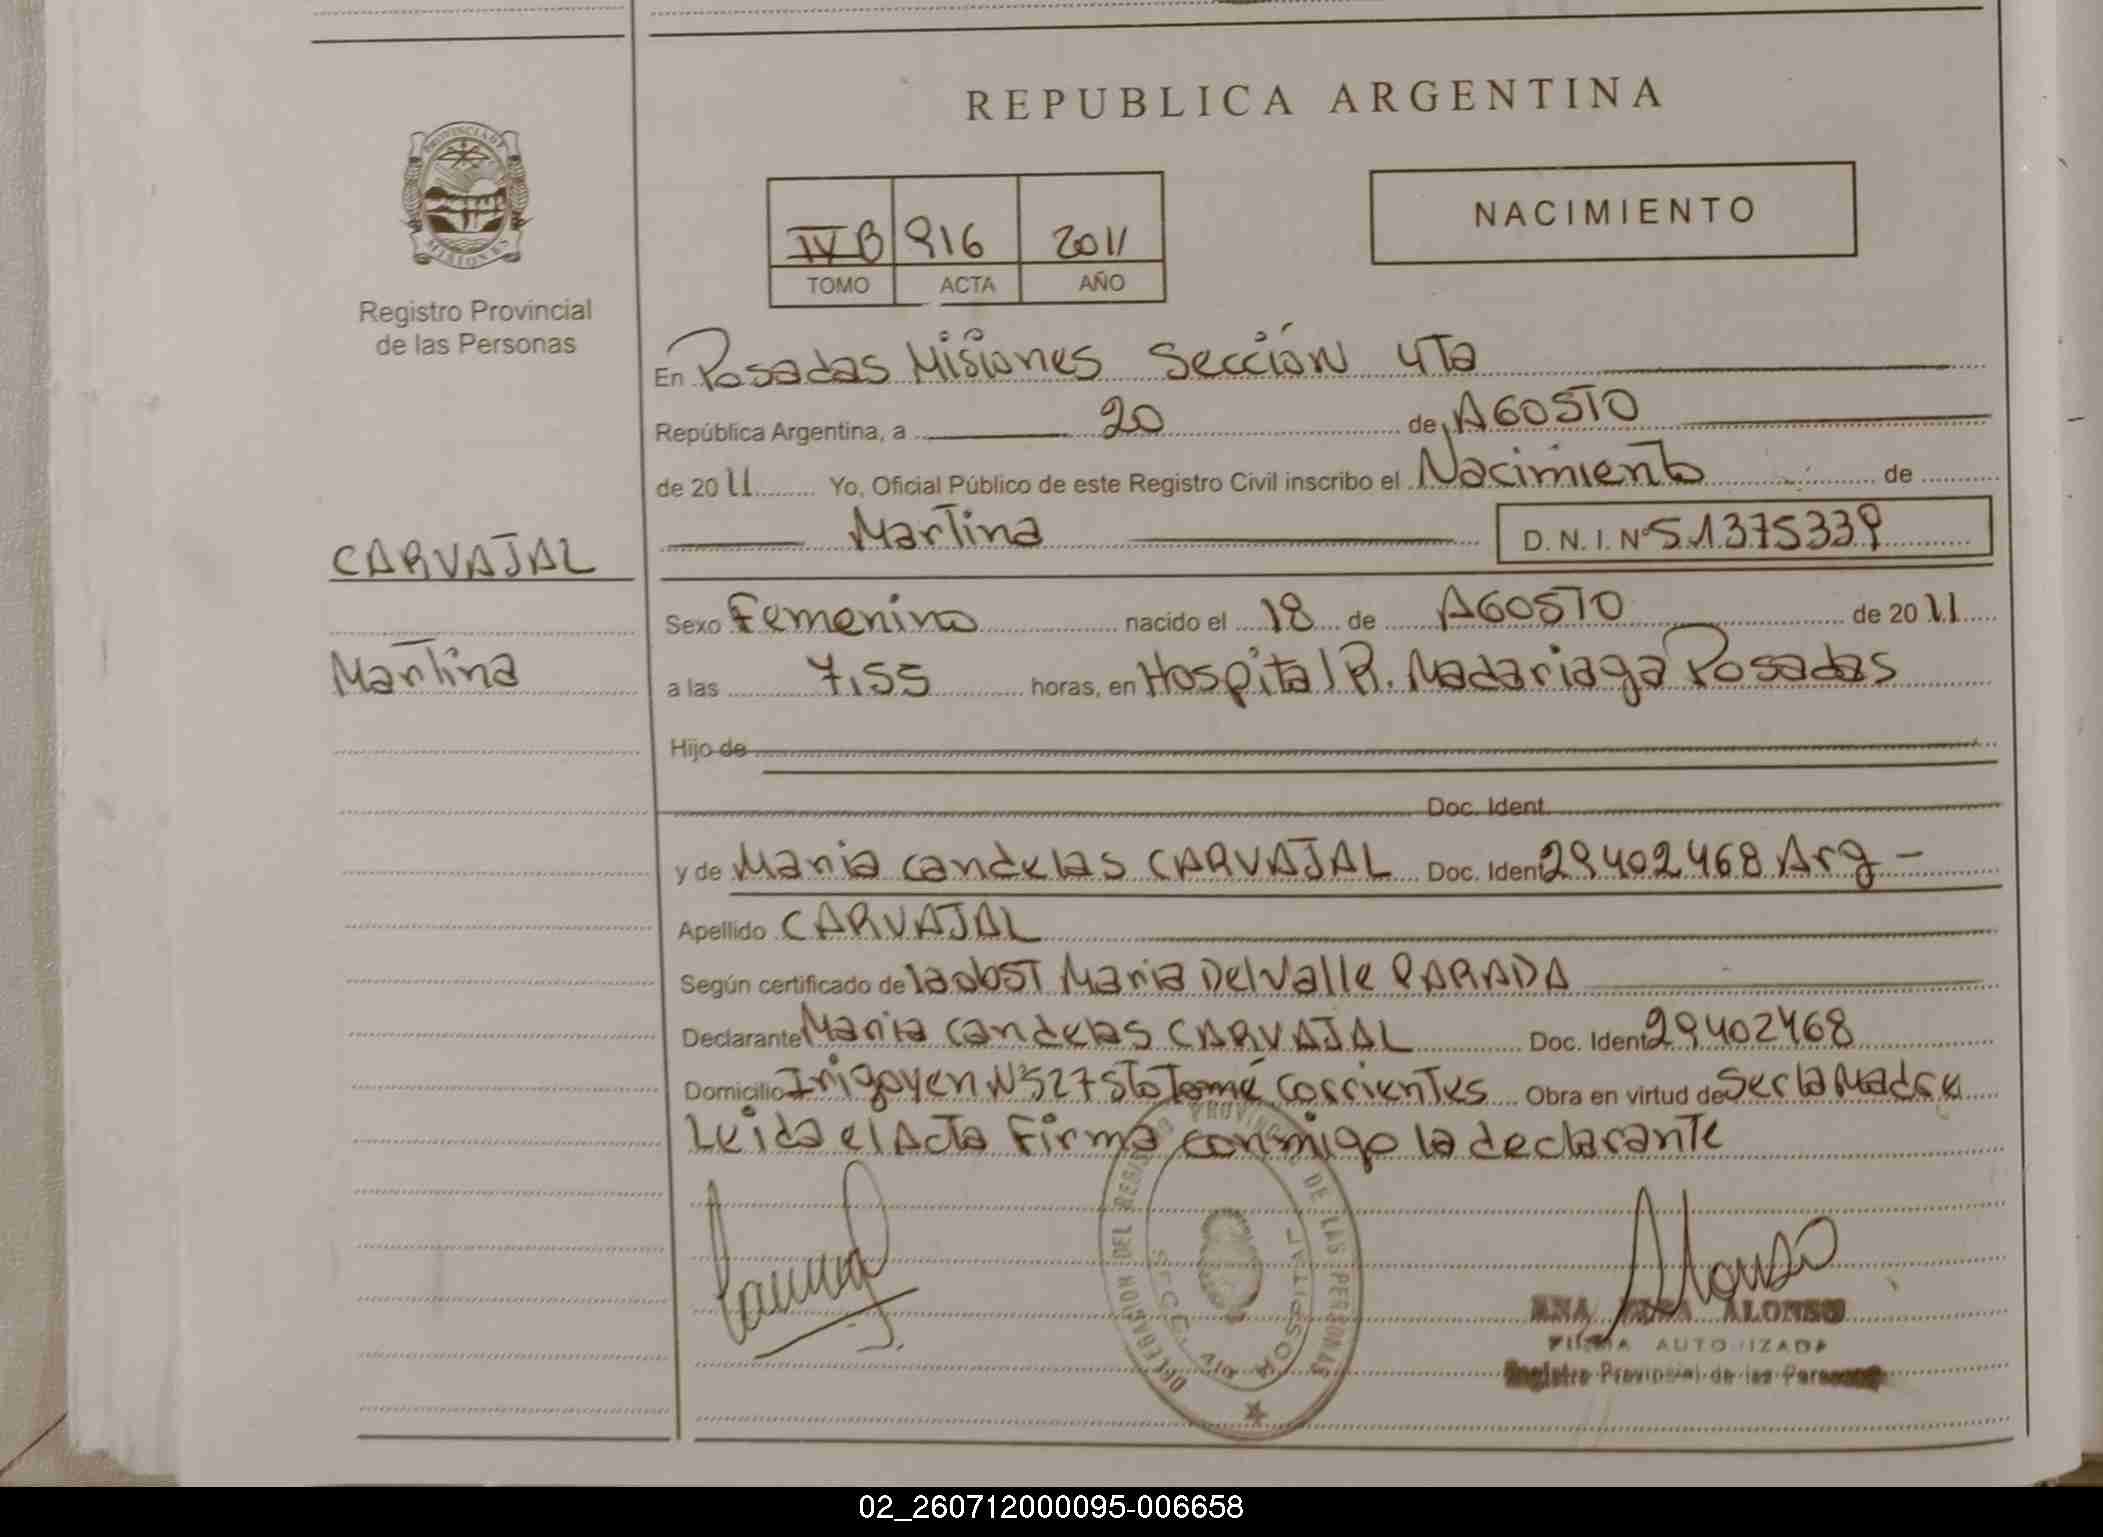 REPUBLICA ARGENTINA
PROVINCIA DE MISIONES
Registro Provincial
de las Personas
IV B 916 2011
TOMO ACTA AÑO
NACIMIENTO
En Posadas Misiones Sección 4Ta
República Argentina, a 20 de AGOSTO
de 2011 Yo, Oficial Público de este Registro Civil inscribo el Nacimiento de
Martina D.N.I. Nº 51375339
CARVAJAL
Martina
Sexo Femenino nacido el 18 de AGOSTO de 2011
a las 7,55 horas, en Hospital R. Madariaga Posadas
Hijo de
Doc. Ident.
y de Maria Candelas CARVAJAL Doc. Ident 29402468 Arg -
Apellido CARVAJAL
Según certificado de la obsT Maria Del Valle PARADA
Declarante Maria Candelas CARVAJAL Doc. Ident 29402468
Domicilio Irigoyen Nº 527 Sto Tomé Corrientes Obra en virtud de Ser la Madre
Leida el Acta Firma conmigo la declarante
DELEGACION DEL REGISTRO PROVINCIAL DE LAS PERSONAS
Alonso
ANA ALONSO
FIRMA AUTORIZADA
Registro Provincial de las Personas
02_260712000095-006658